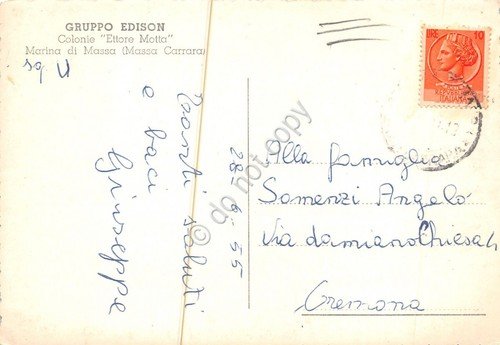 GRUPPO EDISON
Colonie "Ettore Motta"
Marina di Massa (Massa Carrara)
Tanti saluti
e baci
Giuseppe
28-6-55
LIRE 10
REPUBBLICA
ITALIANA
Alla famiglia
Somenzi Angelo
Via damiano Chiesa 4
Cremona
do not copy